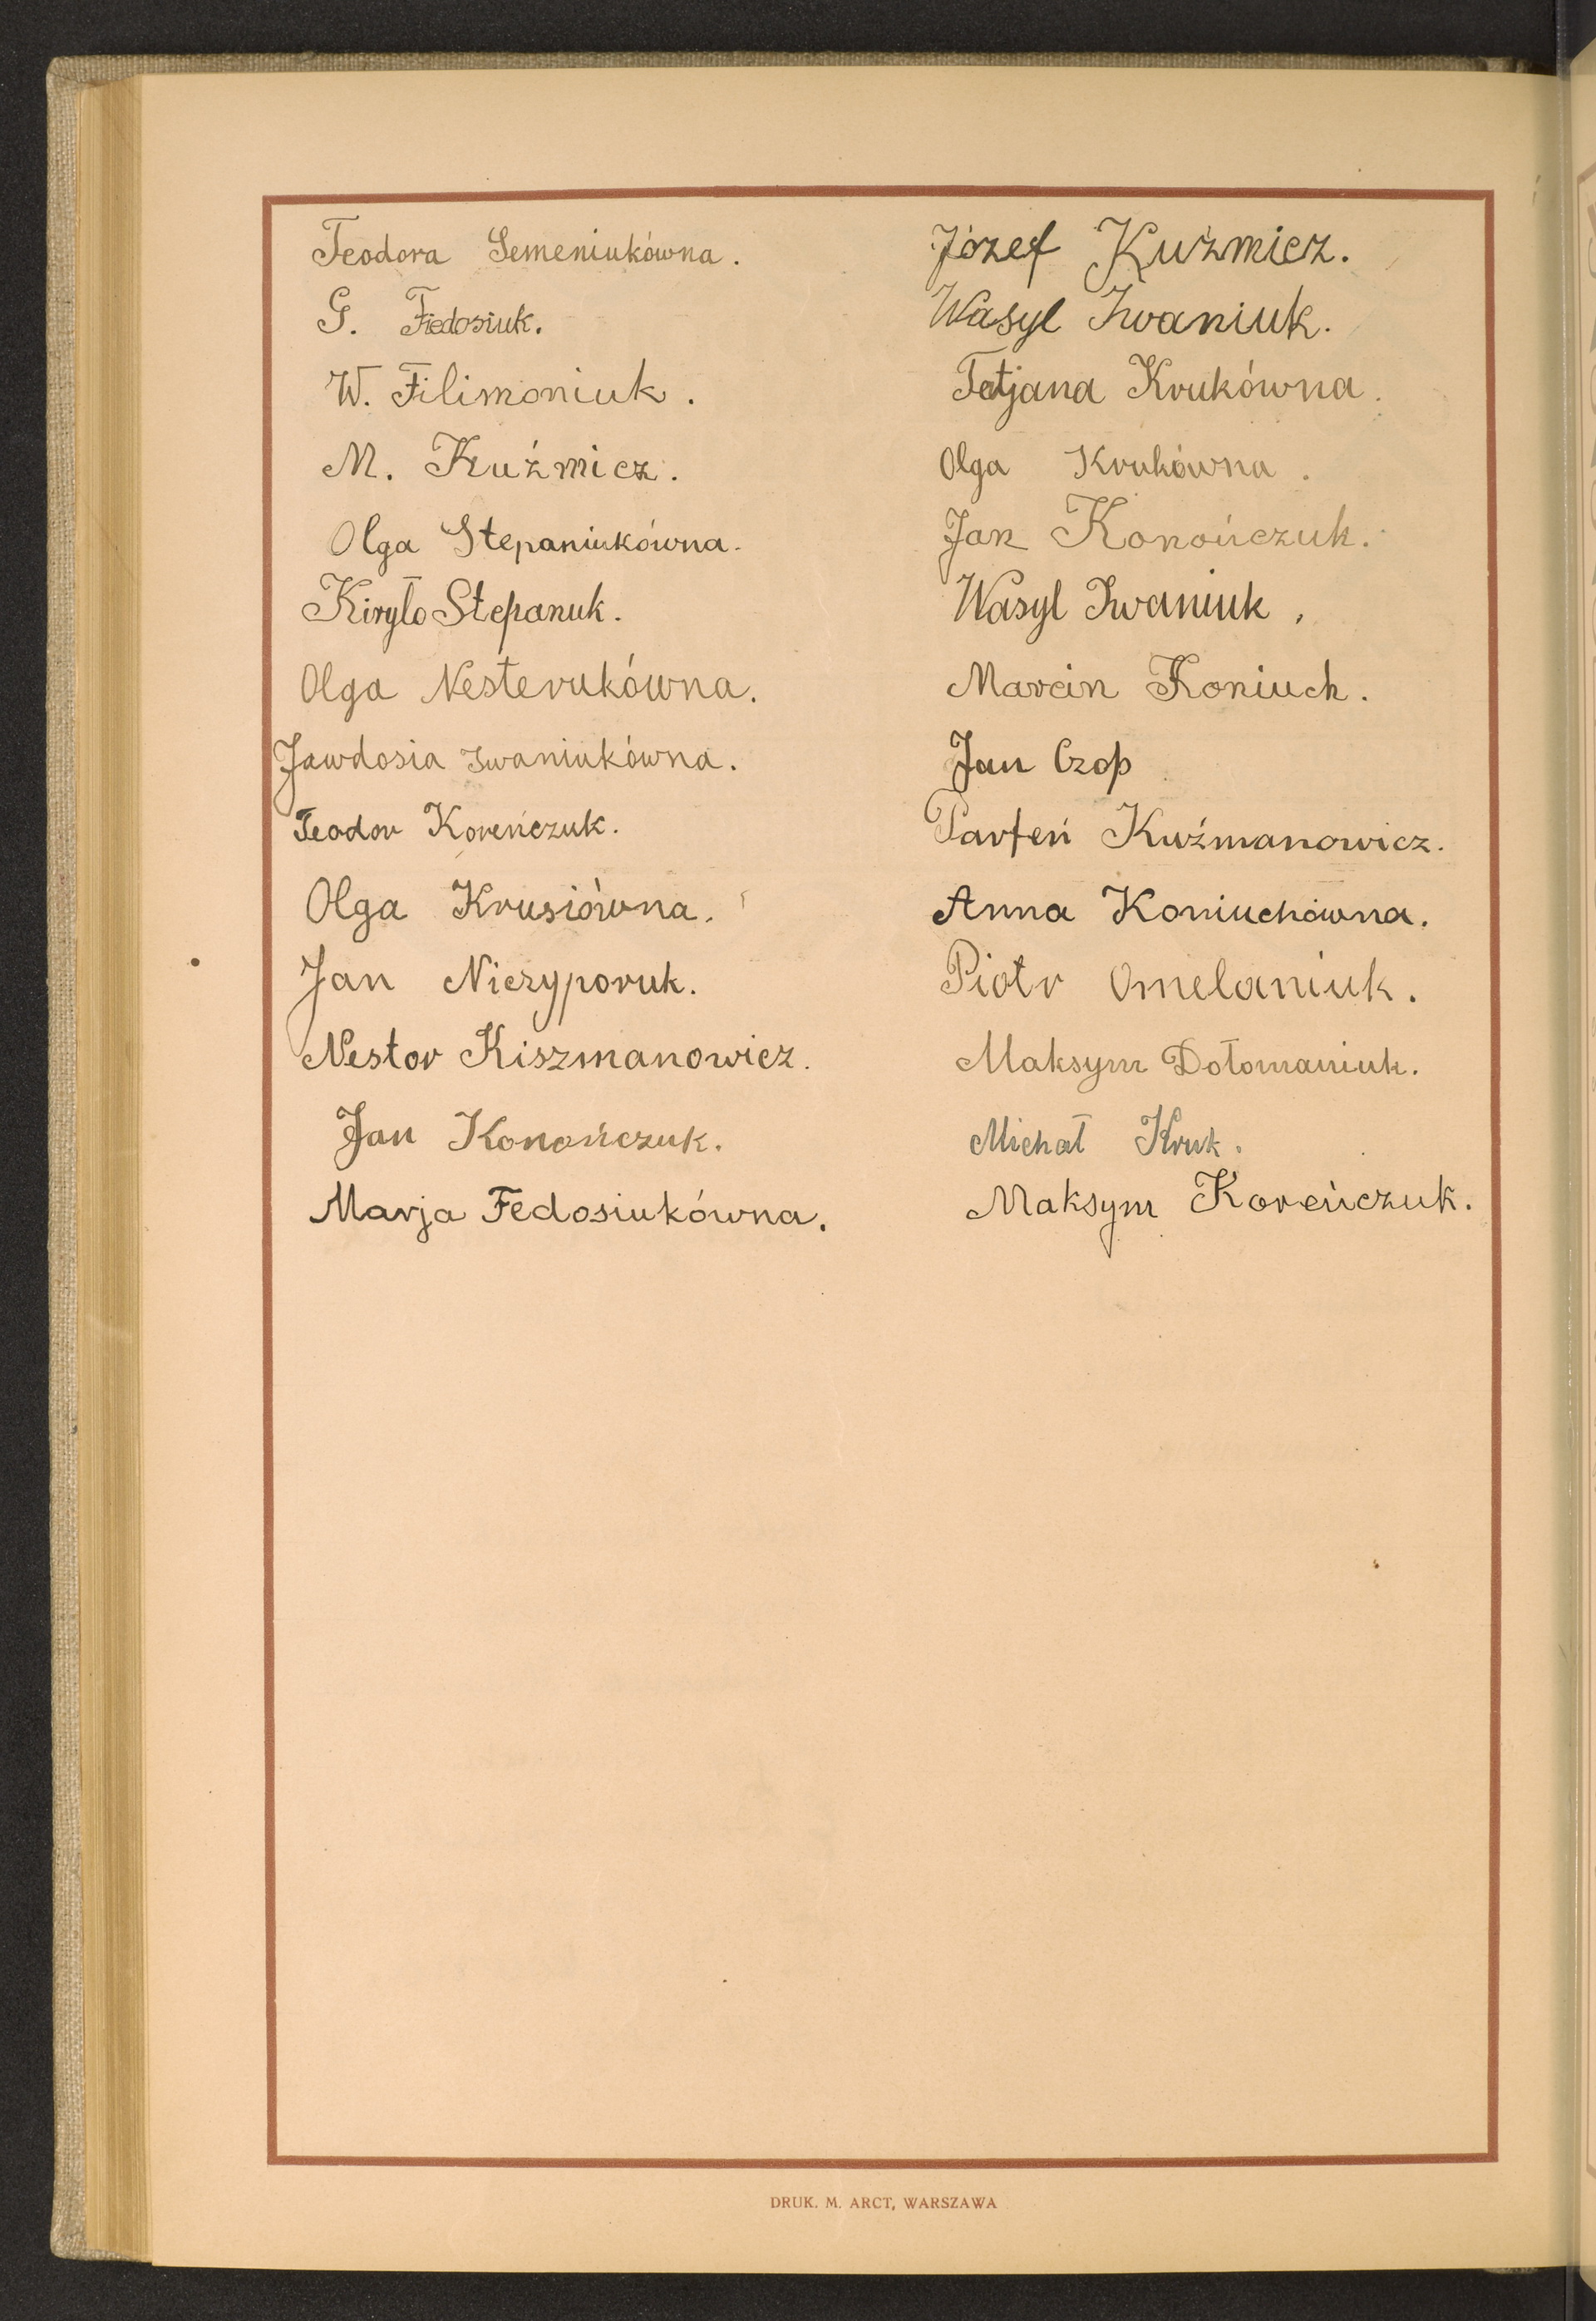 Teodora Semeniukówna.
G. Fiedosiuk.
W. Filimoniuk.
M. Kuźmicz.
Olga Stepaniukówna.
Kiryło Stepanuk.
Olga Nesterukówna.
Jawdosia Iwaniukówna.
Teodor Koreńczuk.
Olga Krusiówna.
Jan Niczyporuk.
Nestor Kiszmanowicz.
Jan Konończuk.
Marja Fedosiukówna.
Józef Kuźmicz.
Wasyl Iwaniuk.
Tatjana Krukówna.
Olga Krukówna.
Jan Konończuk.
Wasyl Iwaniuk,
Marcin Koniuch.
Jan Czop
Parfeń Kuźmanowicz.
Anna Koniuchówna.
Piotr Omelaniuk.
Maksym Dołomaniuk.
Michał Kruk.
Maksym Koreńczuk.
DRUK. M. ARCT, WARSZAWA